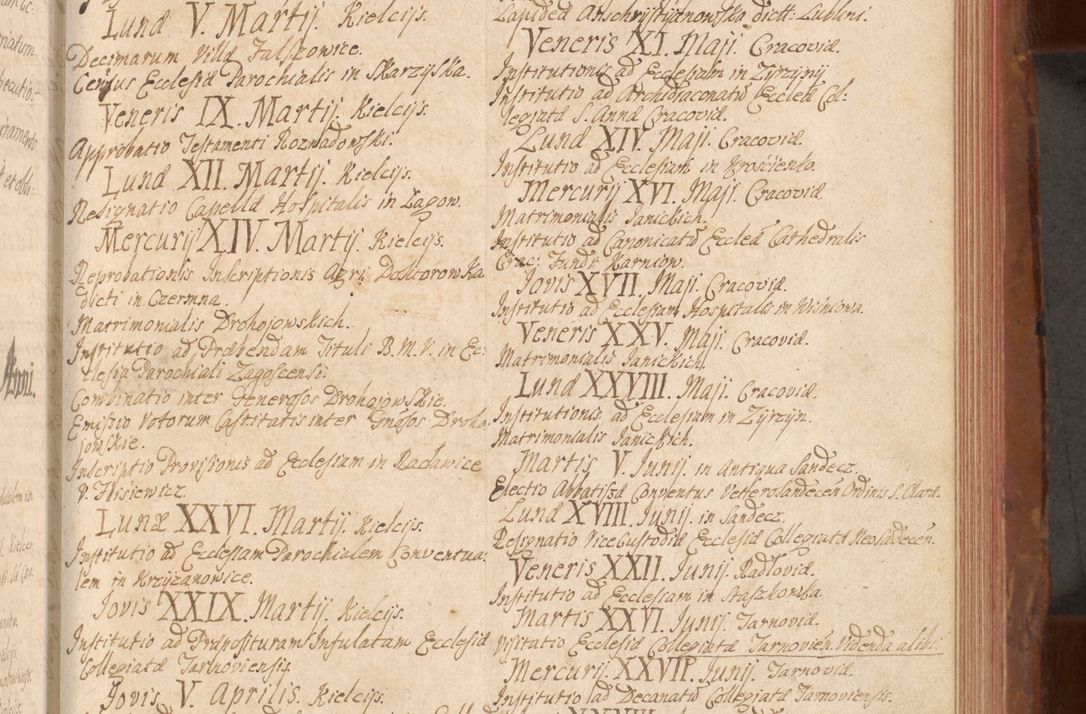 Lunæ V. Martij. Kielcijs.
Decimarum Villæ Falszowice.
Census Ecclesiæ Parochialis in Skarzyska.
Veneris IX. Martij. Kielcijs.
Approbatio Testamenti Rozwadowski.
Lunæ XII. Martij. Kielcijs.
Resignatio Capellæ Hospitalis in Zagow.
Mercurij XIV. Martij. Kielcijs.
Reprobationis Inscriptionis Agri Doktorowska
dicti in Czermna.
Matrimonialis Drohojowskich.
Institutio ad Præbendam Tituli B. M. V. in Ec:
clesia Parochiali Zagoscensi.
Combinatio inter Generosos Drohojowskie.
Emissio Votorum Castitatis inter Gnosos Droho
jowskie.
Inscriptio Provisionis ad Ecclesiam in Raclawice
V. Hisiewicz.
Lunæ XXVI. Martij. Kielcijs.
Institutio ad Ecclesiam Parochialem Conventua:
lem in Krzyzanowice.
Jovis XXIX. Martij. Kielcijs.
Institutio ad Præposituram Infulatam Ecclesiæ
Collegiatæ Tarnoviensis.
Jovis V. Aprilis. Kielcijs.
Veneris XI. Maji. Cracoviæ.
Institutionis ad Ecclesiam in Zyrzynij
Institutio ad Archidiaconatū Eccleæ Col:
legiatæ S. Annæ Cracoviæ.
Lunæ XIV. Maji. Cracoviæ.
Institutio ad Ecclesiam in Kroscienko.
Mercurij XVI. Maji. Cracoviæ.
Matrimonialis Janickich.
Institutio ad Canonicatū Eccleæ Cathedralis
Crac: Fundi Karniow.
Jovis XVII. Maji. Cracoviæ.
Institutio ad Ecclesiam Hospitalis in Wisniowa.
Veneris XXV. Maji. Cracoviæ.
Matrimonialis Janickich.
Lunæ XXVIII. Maji. Cracoviæ.
Institutionis ad Ecclesiam in Zyrzyn.
Matrimonialis Janickich.
Martis V. Junij. in Antiqua Sandecz.
Electio Abbatissæ Conventus Veterosandecen Ordinis S. Claræ.
Lunæ XVIII. Junij. in Sandecz.
Resignatio Vice Custodiæ Ecclesiæ Collegiatæ Neosadecen.
Veneris XXII. Junij. Radloviæ.
Institutio ad Ecclesiam in Staszkowka.
Martis XXVI. Junij. Tarnoviæ.
Visitatio Ecclesiæ Collegiatæ Tarnovien. Videnda alibi.
Mercurij XXVII. Junij. Tarnoviæ.
Institutio ad Decanatū Collegiatæ Tarnoviensis.